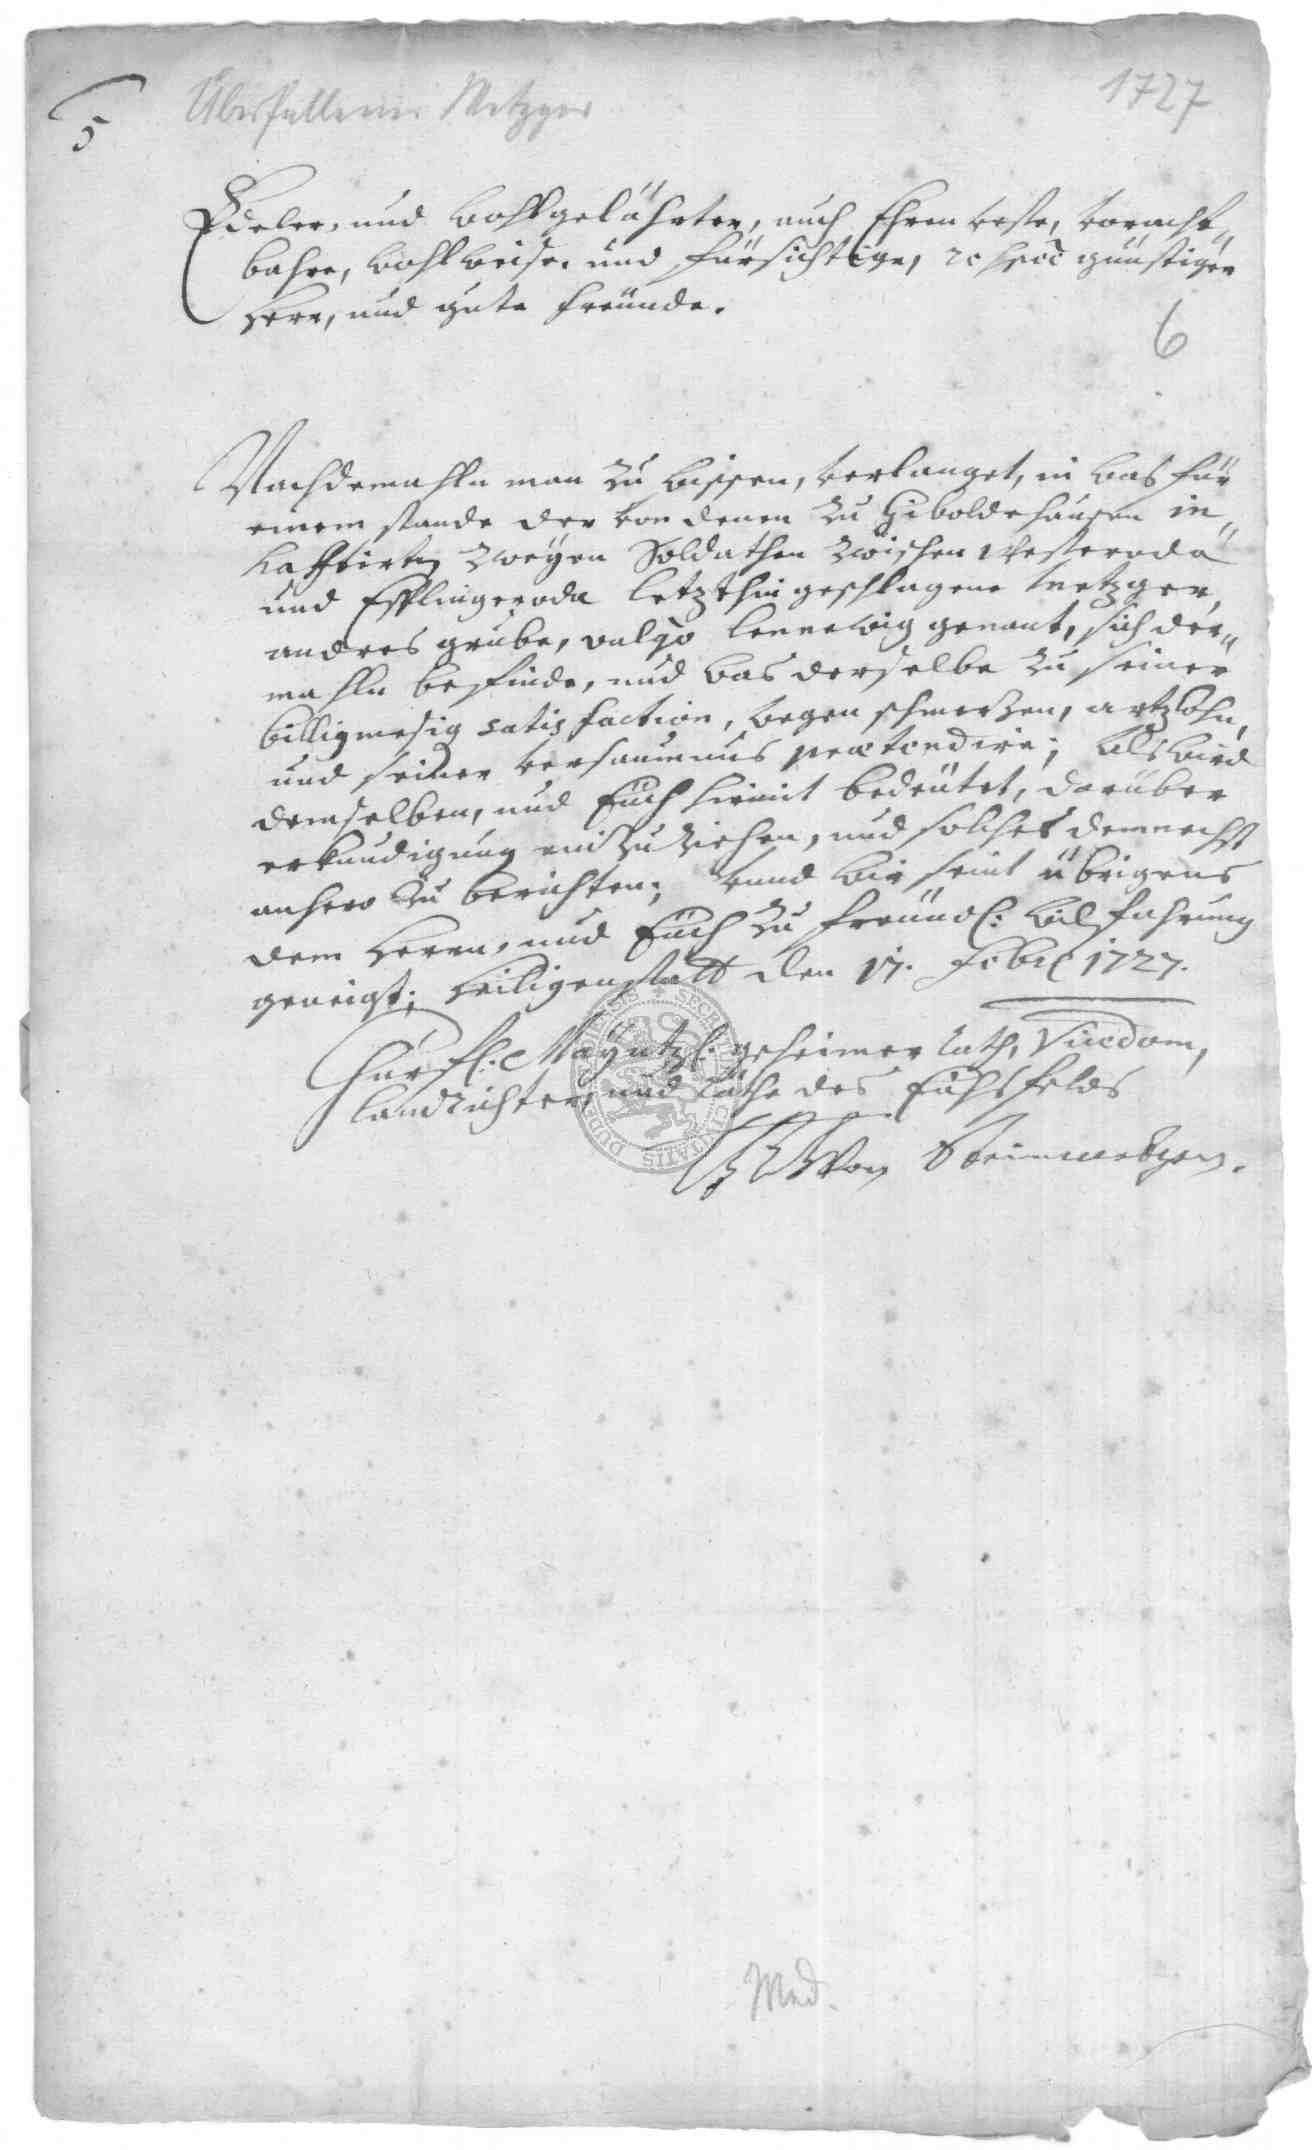 5
Überfallener Metzger
1727
Edeler, und wohlgelährter, auch Ehrenveste, voracht-
bahre, wohlweise, und fürsichtige, günstiger
Herr, und gute freünde.
6
Nachdemahln man zu wissen, verlanget, in was für
einem stande der von denen zu Giboldehausen in-
haftirten zweyen Soldathen zwischen Westeroda
und Esplingeroda letzthin geschlagene Metzger,
andres grube, vulgo lennewig genant, sich der-
mahln befinde, und was derselbe zu seiner
billigmesig satisfaction, wegen schmerzen, artzlohn,
und seiner versaumnus praetendire; Als wird
demselben, und Euch hiemit bedeütet, darüber
erkundigung einzuziehen, und solches demnechst
anhero zu berichten; vnnd wir seint übrigens
dem Herrn, und Euch zu freündl: wilfahrung
geneigt; Heiligenstatt den 17. 1727.
Churfl: Mayntzl: geheimer rath, Vicedom,
landrichter, und räthe des Eichsfelds
Von Steinmetzen.
Med.